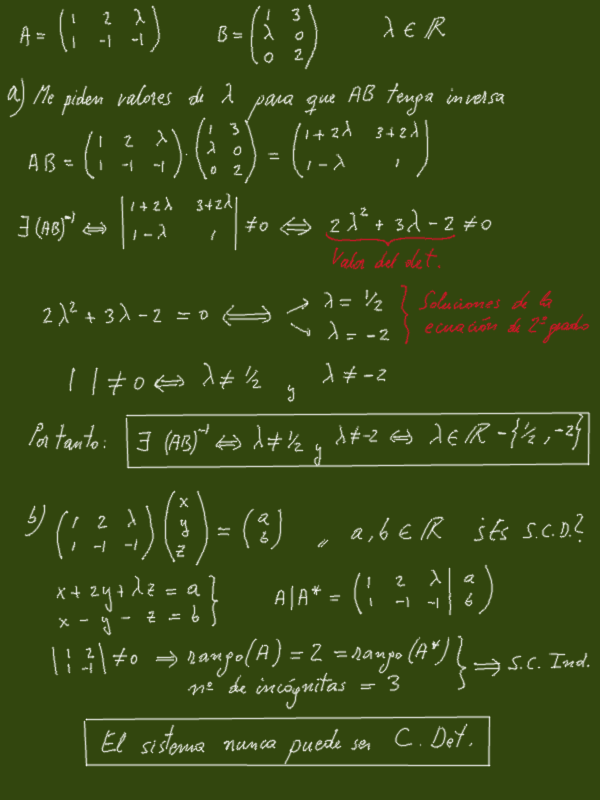 A = ( 1 2 λ ; 1 -1 -1 )   B = ( 1 3 ; λ 0 ; 0 2 )   λ ∈ ℝ
a) Me piden valores de λ para que AB tenga inversa
AB = ( 1 2 λ ; 1 -1 -1 ) · ( 1 3 ; λ 0 ; 0 2 ) = ( 1+2λ 3+2λ ; 1-λ 1 )
∃ (AB)⁻¹ ⟺ | 1+2λ 3+2λ ; 1-λ 1 | ≠ 0 ⟺ 2λ² + 3λ - 2 ≠ 0
Valor del det.
2λ² + 3λ - 2 = 0 ⟺ → λ = 1/2 → λ = -2 } Soluciones de la ecuación de 2º grado
| | ≠ 0 ⟺ λ ≠ 1/2 y λ ≠ -2
Por tanto: ∃ (AB)⁻¹ ⟺ λ ≠ 1/2 y λ ≠ -2 ⟺ λ ∈ ℝ - {1/2, -2}
b) ( 1 2 λ ; 1 -1 -1 ) ( x ; y ; z ) = ( a ; b ) ,, a, b ∈ ℝ ¿Es S.C.D.?
x + 2y + λz = a }
x - y - z = b }
A|A* = ( 1 2 λ | a ; 1 -1 -1 | b )
| 1 2 ; 1 -1 | ≠ 0 ⟹ rango(A) = 2 = rango(A*) } ⟹ S.C. Ind.
nº de incógnitas = 3
El sistema nunca puede ser C. Det.